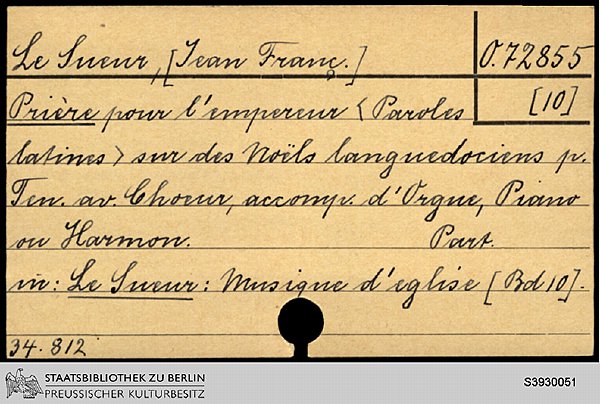 Le Sueur, [Jean Franç.]
O. 72855
[10]
Prière pour l'empereur < Paroles
latines > sur des Noëls languedociens p.
Ten. av. Choeur, accomp. d'Orgue, Piano
ou Harmon. Part.
in: Le Sueur: Musique d'eglise [Bd 10].
34. 812
STAATSBIBLIOTHEK ZU BERLIN
PREUSSISCHER KULTURBESITZ
S3930051